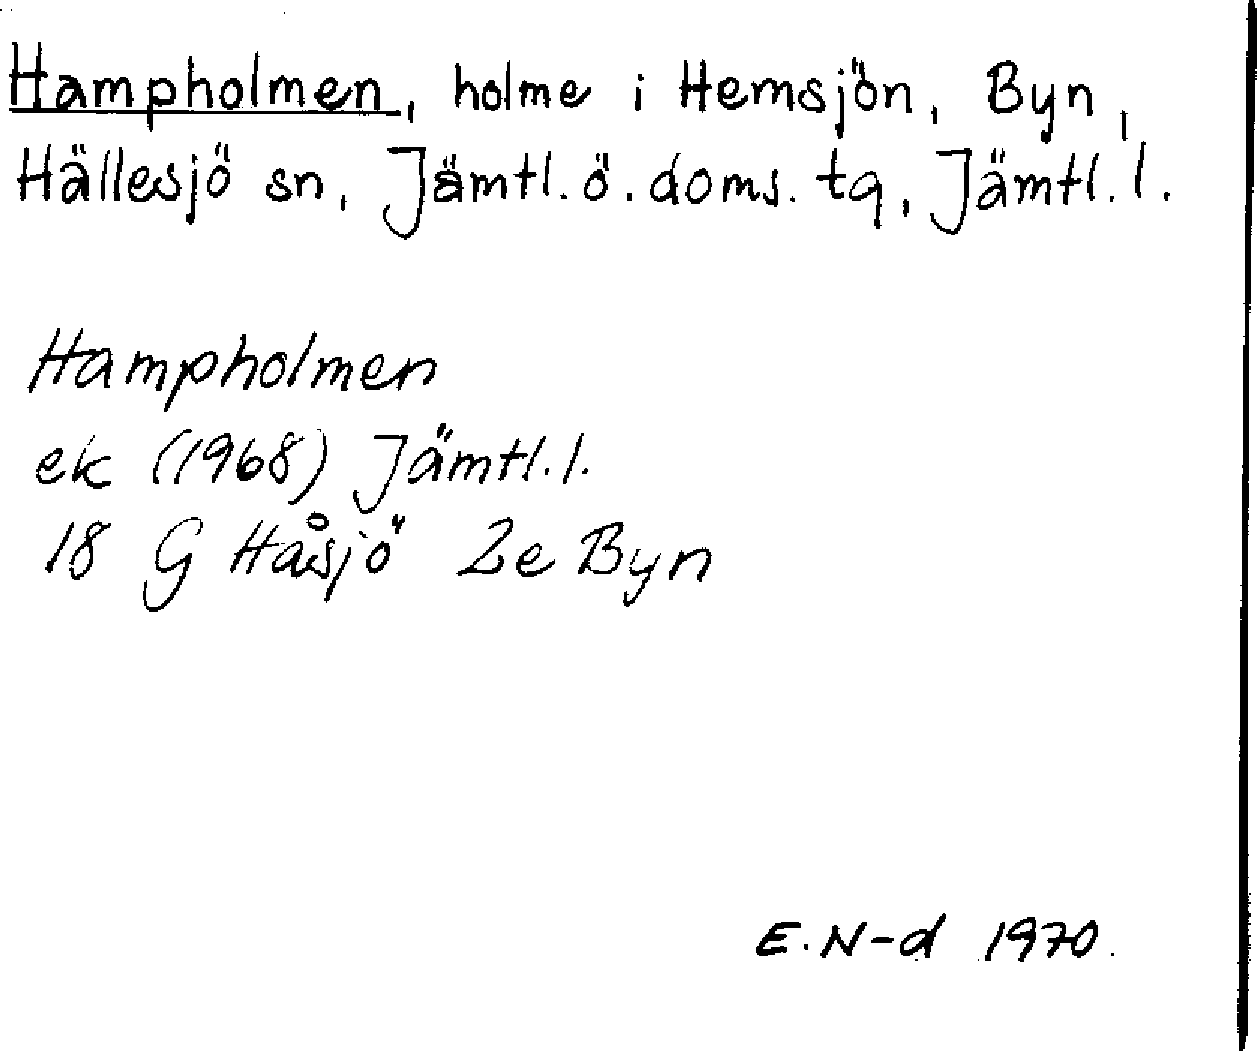 Hampholmen, holme i Hemsjön, Byn,
Hällesjö sn, Jämtl. ö. doms. tq, Jämtl. l.
Hampholmen
ek (1968) Jämtl. l.
18 G Håsjö 2e Byn
E. N-d 1970.